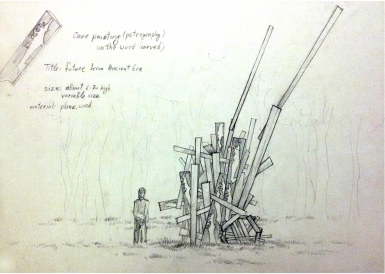 Cave painting (petrography)
on the wood (carved)
Title: Future from Ancient Era
size: about 6-7m high
variable size
material: plank, wood